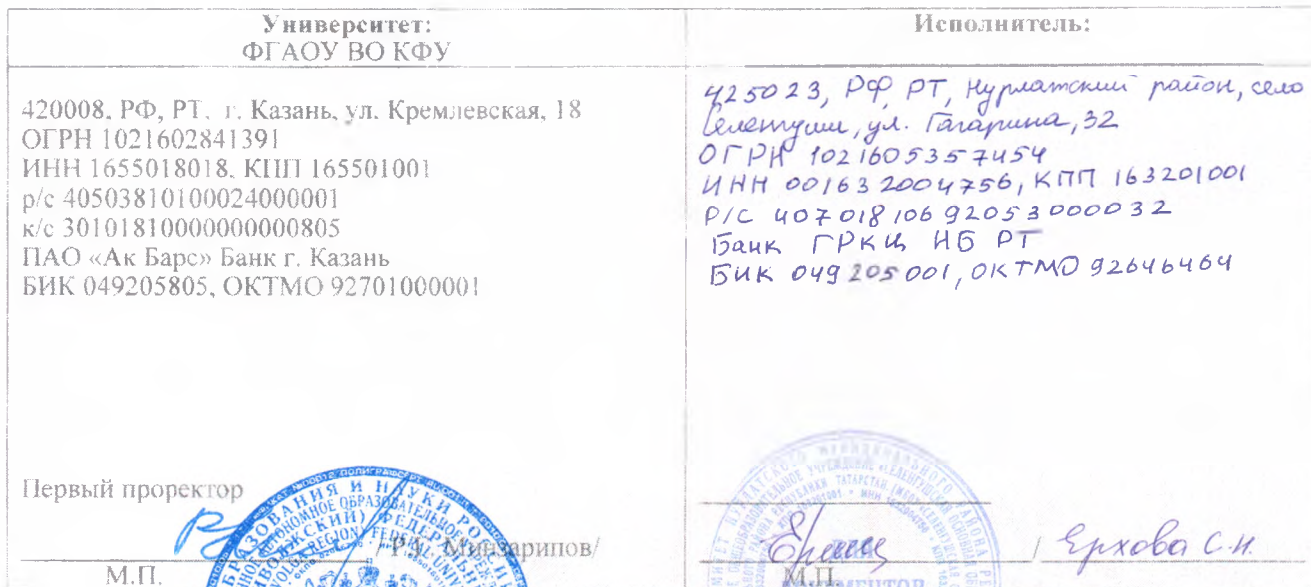 Университет:
ФГАОУ ВО КФУ
420008, РФ, РТ, г. Казань, ул. Кремлевская, 18
ОГРН 1021602841391
ИНН 1655018018, КПП 165501001
р/с 40503810100024000001
к/с 30101810000000000805
ПАО «Ак Барс» Банк г. Казань
БИК 049205805, ОКТМО 92701000001
Первый проректор
/Р.Г. Минзарипов/
М.П.
Исполнитель:
425023, РФ, РТ, Нурлатский район, село
Селенгуши, ул. Гагарина, 32
ОГРН 1021605357454
ИНН 001632004756, КПП 163201001
Р/С 40701810692053000032
Банк ГРКЦ НБ РТ
БИК 049205001, ОКТМО 92646464
/ Ерхова С.И.
М.П.